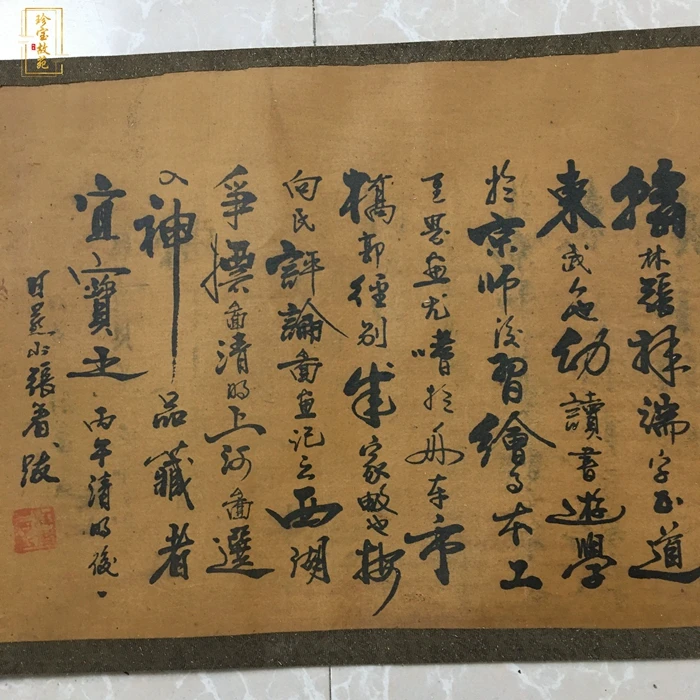 珍宝故苑
翰林張擇端字正道
東武人也幼讀書遊學
於京師後習繪事本工
界畫尤嗜於舟車市
橋郭徑別成家數也按
向氏評論圖畫記云西湖
爭標圖清明上河圖選
入神品藏者
宜寶之丙午清明後一
日燕山張著跋